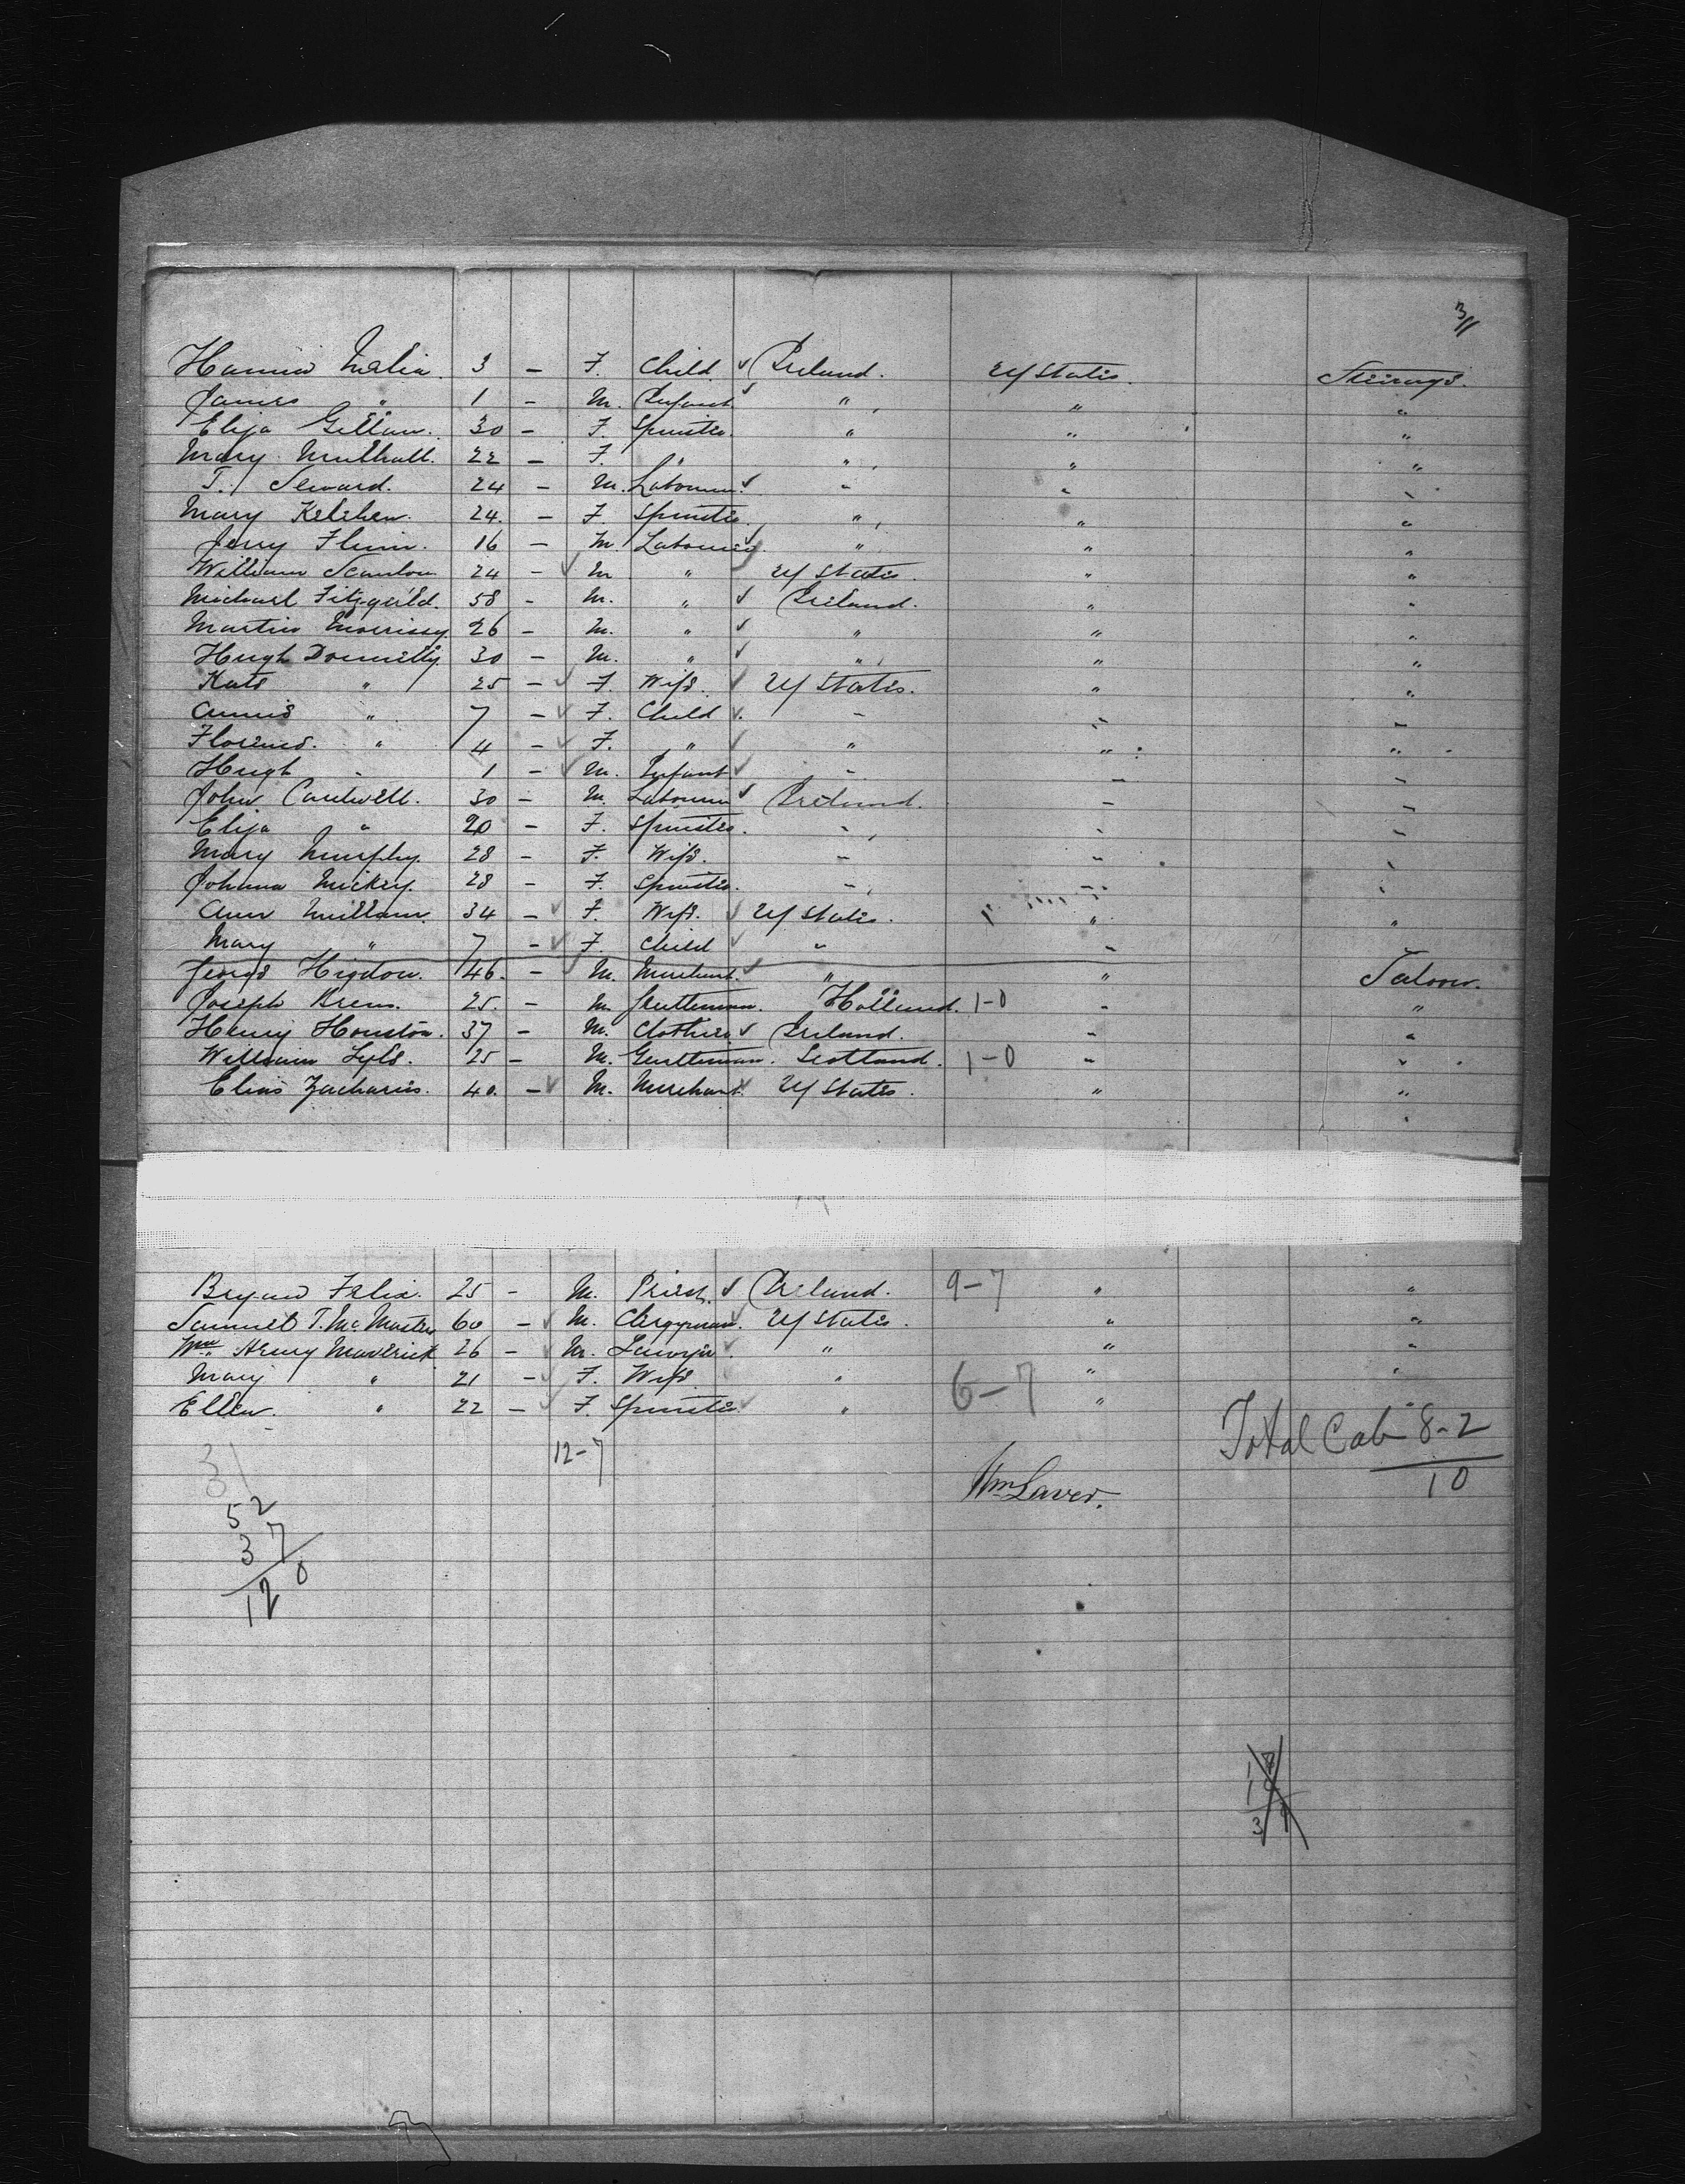 3/11
Hannia Malia 3 - F. Child. ✓ Ireland. U/States. Steerage.
James " 1 - M. Infant ✓ " " "
Eliza Gillan. 30 - F. Spinster. " " "
Mary Mulhall. 22 - F. " " " "
T. Seward. 24 - M. Labourer ✓ " " "
Mary Kelehen. 24. - F. Spinster " " "
Jerry Flinn. 16 - M. Labourer " " "
William Scanlon 24 - ✓ M " U/States. " "
Michael Fitzgerld. 58 - M. " ✓ Ireland. " "
Martin Morrissy 26 - M. " ✓ " " "
Hugh Donnelly 30 - M. " ✓ " " "
Kate " 25 - ✓ F. Wife. ✓ U/States. " "
Annie " 7 - ✓ F. Child ✓ " " "
Florence. " 4 - ✓ F. " ✓ " " "
Hugh " 1 - ✓ M. Infant ✓ " " "
John Cantwell. 30 - M. Labourer ✓ Ireland. " "
Eliza " 20 - F. Spinster. " " "
Mary Murphy. 28 - F. Wife. " " "
Johanna Mickey. 28 - F. Spinster. " " "
Ann Millam 34 - ✓ F. Wife. ✓ U/States. " "
Mary " 7 - ✓ F. Child ✓ " "
George Higdon. 46. - ✓ M. Merchant. ✓ " " Saloon.
Joseph Brens. 25. - M. Gentleman. Holland. 1-0 " "
Henry Houston. 37 - M. Clothier ✓ Ireland. " "
William Lyle. 25 - M. Gentleman. Scotland. 1-0 " "
Elias Zacharias. 40. - ✓ M. Merchant. ✓ U/States. " "
"
Felix. 25 - M. Priest. ✓ Ireland. 9-7 " "
Samuel T. McMaster 60 - ✓ M. Clergyman. ✓ U/States. " "
Wm. Henry Maverick 26 - ✓ M. Lawyer ✓ " " "
Mary " 21 - ✓ F. Wife " " "
Ellen. " 22 - ✓ F. Spinster. ✓ " 6-7 "
Total Cab 8-2
10
12-7
Wm Laver.
31
52
37
120